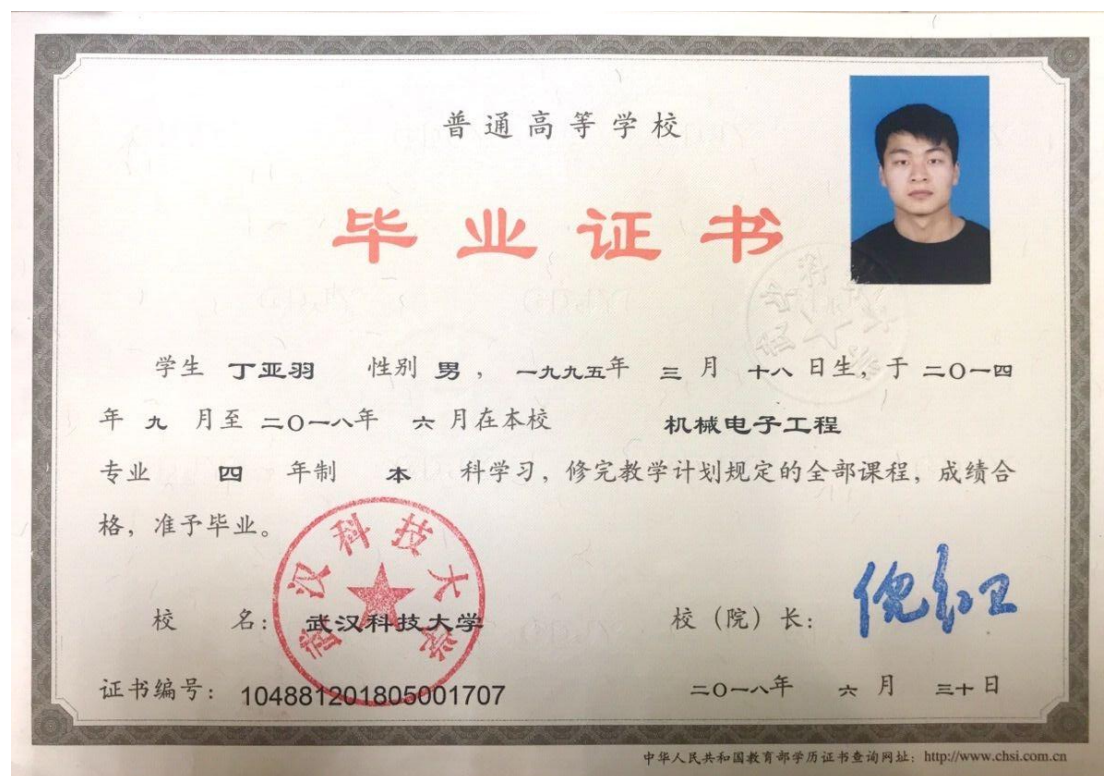 普通高等学校
毕业证书
学生 丁亚羽 性别 男 , 一九九五年 三 月 十八 日生, 于 二〇一四
年 九 月至 二〇一八年 六 月在本校 机械电子工程
专业 四 年制 本 科学习, 修完教学计划规定的全部课程, 成绩合
格, 准予毕业。
武汉科技大学
校 名: 武汉科技大学 校（院）长: 倪红卫
证书编号: 104881201805001707 二〇一八年 六 月 三十 日
中华人民共和国教育部学历证书查询网址: http://www.chsi.com.cn